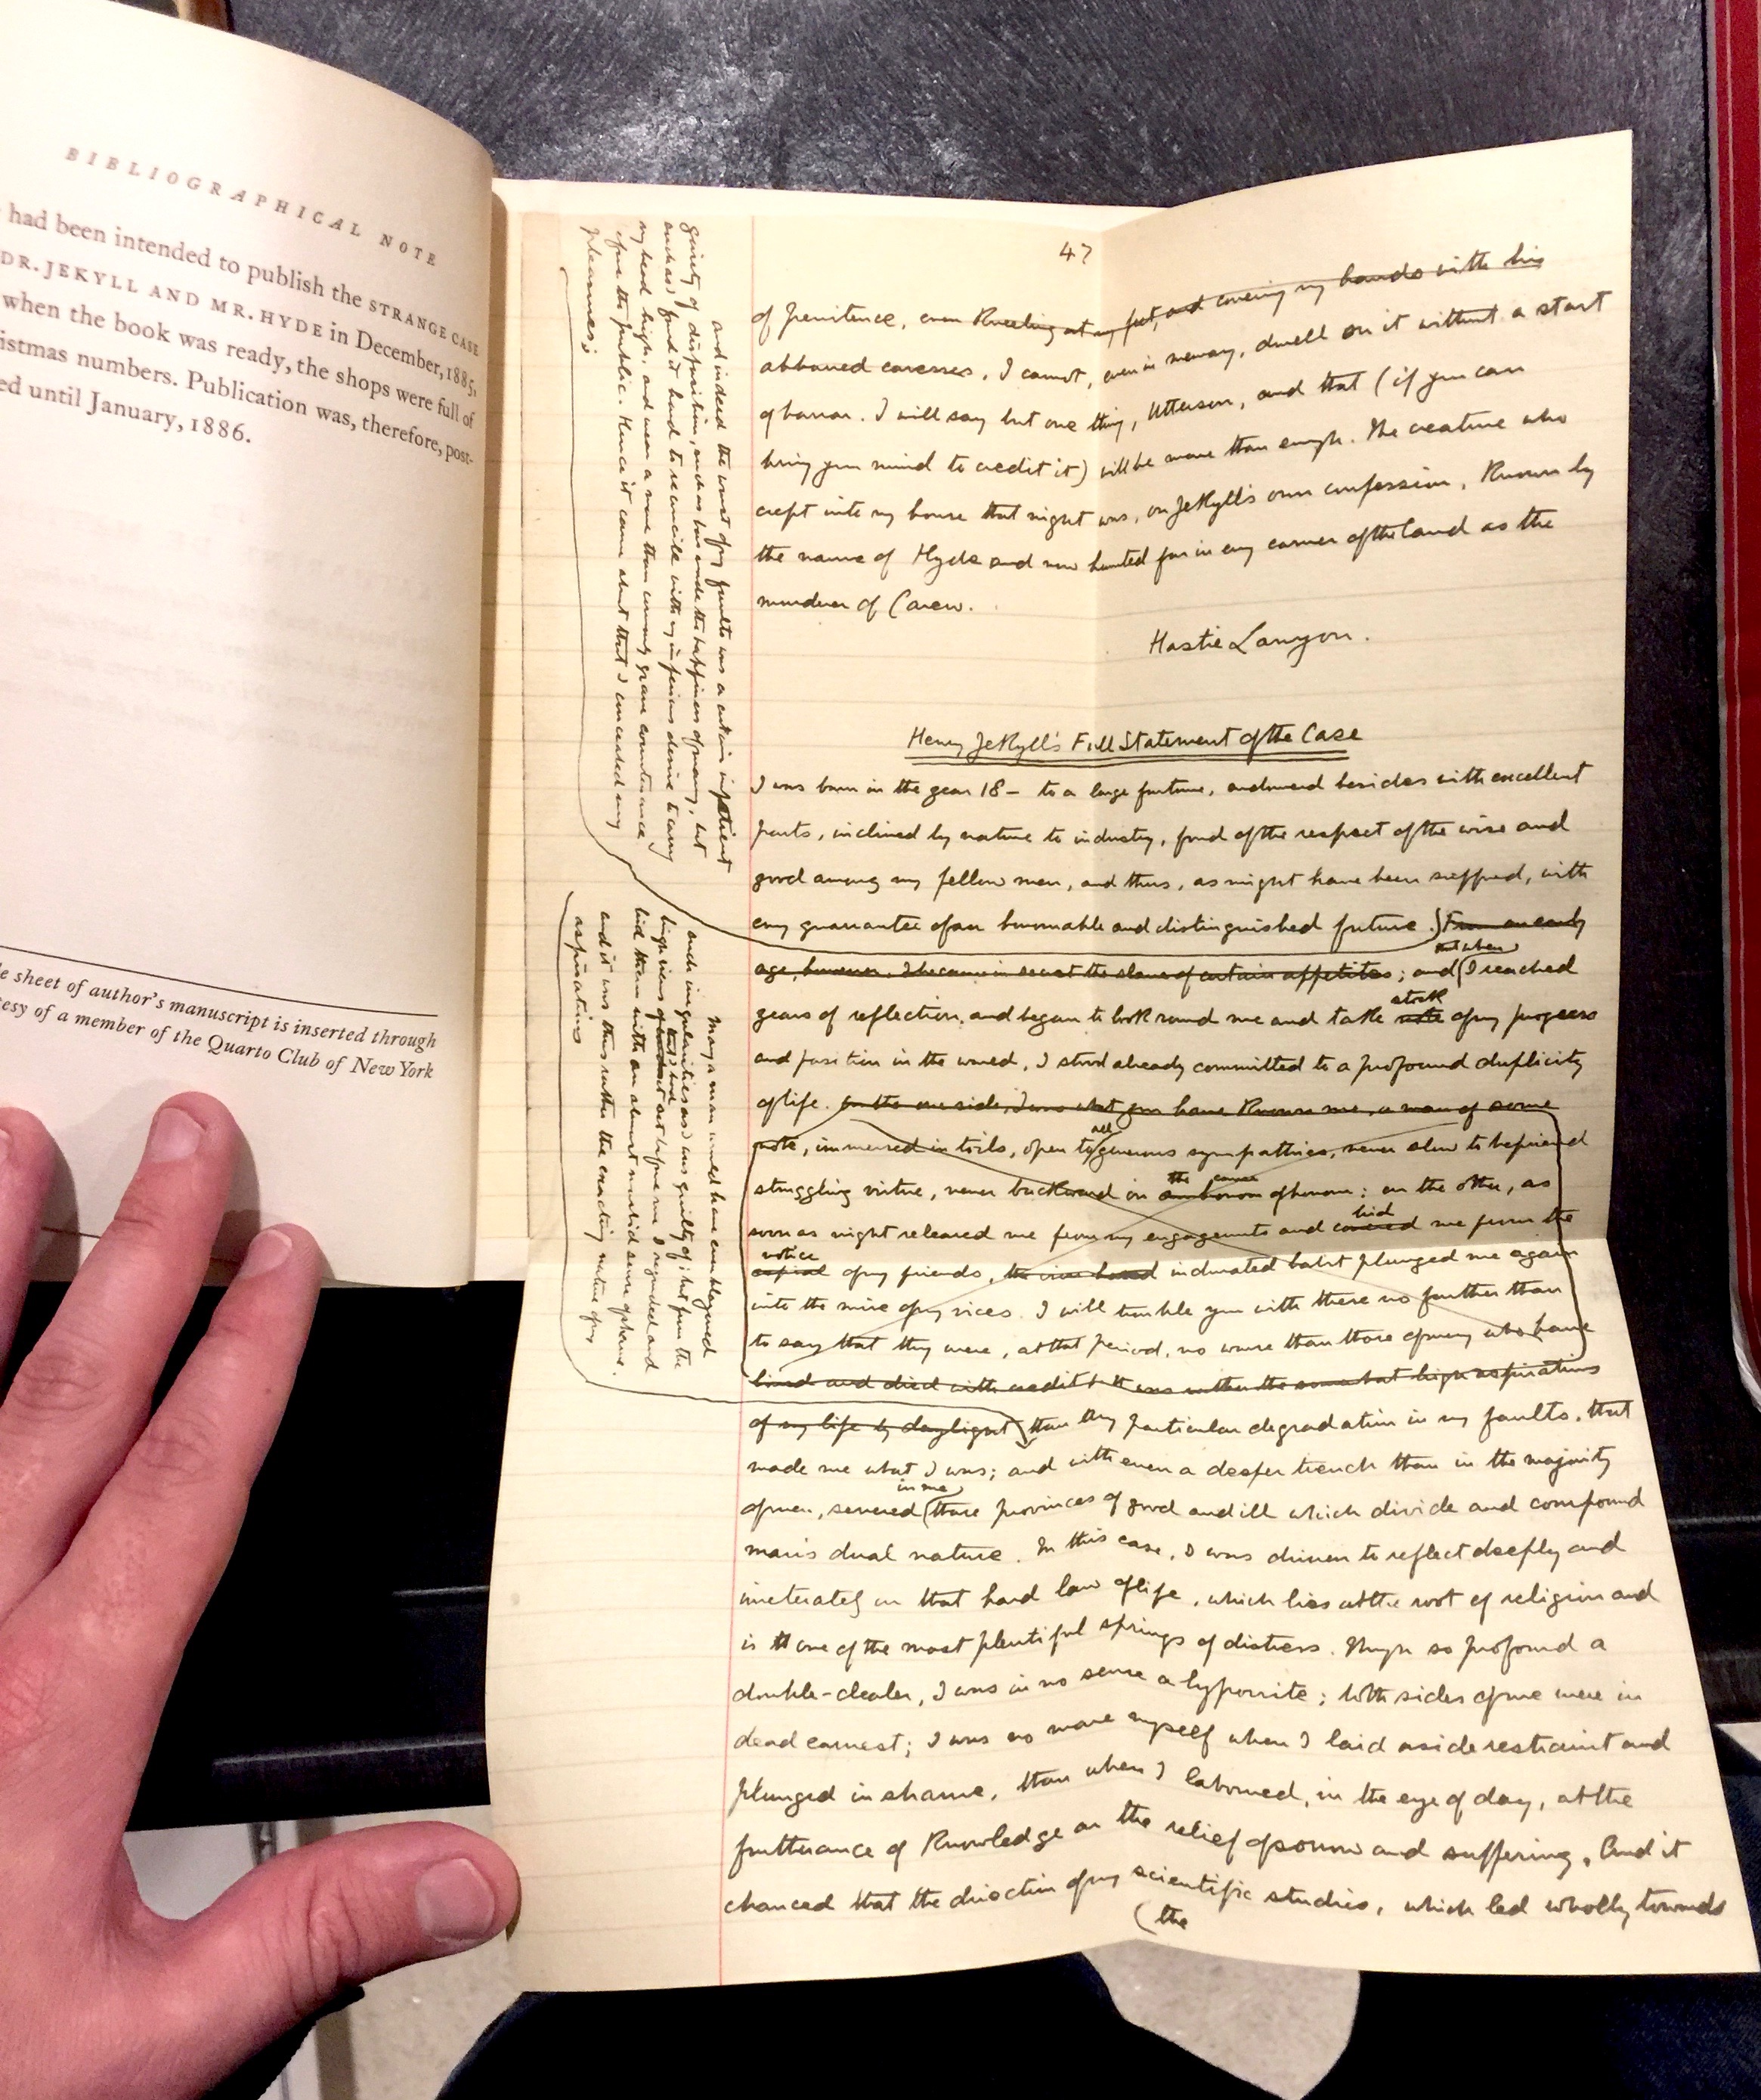 BIBLIOGRAPHICAL NOTE
had been intended to publish the STRANGE CASE
DR. JEKYLL AND MR. HYDE in December, 1885,
when the book was ready, the shops were full of
istmas numbers. Publication was, therefore, post-
ed until January, 1886.
le sheet of author's manuscript is inserted through
tesy of a member of the Quarto Club of New York
47
of penitence, even kneeling at my feet, and covering my hands with his
abhorred caresses, I cannot, even in memory, dwell on it without a start
of horror. I will say but one thing, Utterson, and that (if you can
bring your mind to credit it) will be more than enough. The creature who
crept into my house that night was, on Jekyll's own confession, known by
the name of Hyde and now hunted for in every corner of the land as the
murderer of Carew.
Hastie Lanyon.
Henry Jekyll's Full Statement of the Case
I was born in the year 18— to a large fortune, endowed besides with excellent
parts, inclined by nature to industry, fond of the respect of the wise and
good among my fellow men, and thus, as might have been supposed, with
every guarantee of an honourable and distinguished future. From an early
age, however, I became in secret the slave of certain appetites; and when I reached
years of reflection, and began to look round me and take note stock of my progress
and position in the world, I stood already committed to a profound duplicity
of life. On the one side, I was what you have known me, a man of some
note, immersed in toils, open to all generous sympathies, never slow to befriend
struggling virtue, never backward in the cause of honour: on the other, as
soon as night released me from my engagements and covered hid me from the
notice of my friends, the iron hand indurated habit plunged me again
into the mire of my vices. I will trouble you with these no further than
to say that they were, at that period, no worse than those of many who have
lived and died with credit. It was rather the somewhat high aspirations
of my life by daylight than any particular degradation in my faults, that
made me what I was; and with even a deeper trench than in the majority
of men, severed in me those provinces of good and ill which divide and compound
man's dual nature. In this case, I was driven to reflect deeply and
inveterately on that hard law of life, which lies at the root of religion and
is one of the most plentiful springs of distress. Though so profound a
double-dealer, I was in no sense a hypocrite; both sides of me were in
dead earnest; I was no more myself when I laid aside restraint and
plunged in shame, than when I laboured, in the eye of day, at the
furtherance of knowledge or the relief of sorrow and suffering. And it
chanced that the direction of my scientific studies, which led wholly towards
(the
and indeed the worst of my faults was a certain impatient
gaiety of disposition, such as has made the happiness of many, but
such as I found it hard to reconcile with my imperious desire to carry
my head high, and wear a more than commonly grave countenance
before the public. Hence it came about that I concealed my
pleasures;
Many a man would have even blazoned
such irregularities as I was guilty of; but from the
high views that I had set before me I regarded and
hid them with an almost morbid sense of shame.
and it was thus rather the exacting nature of my
aspirations